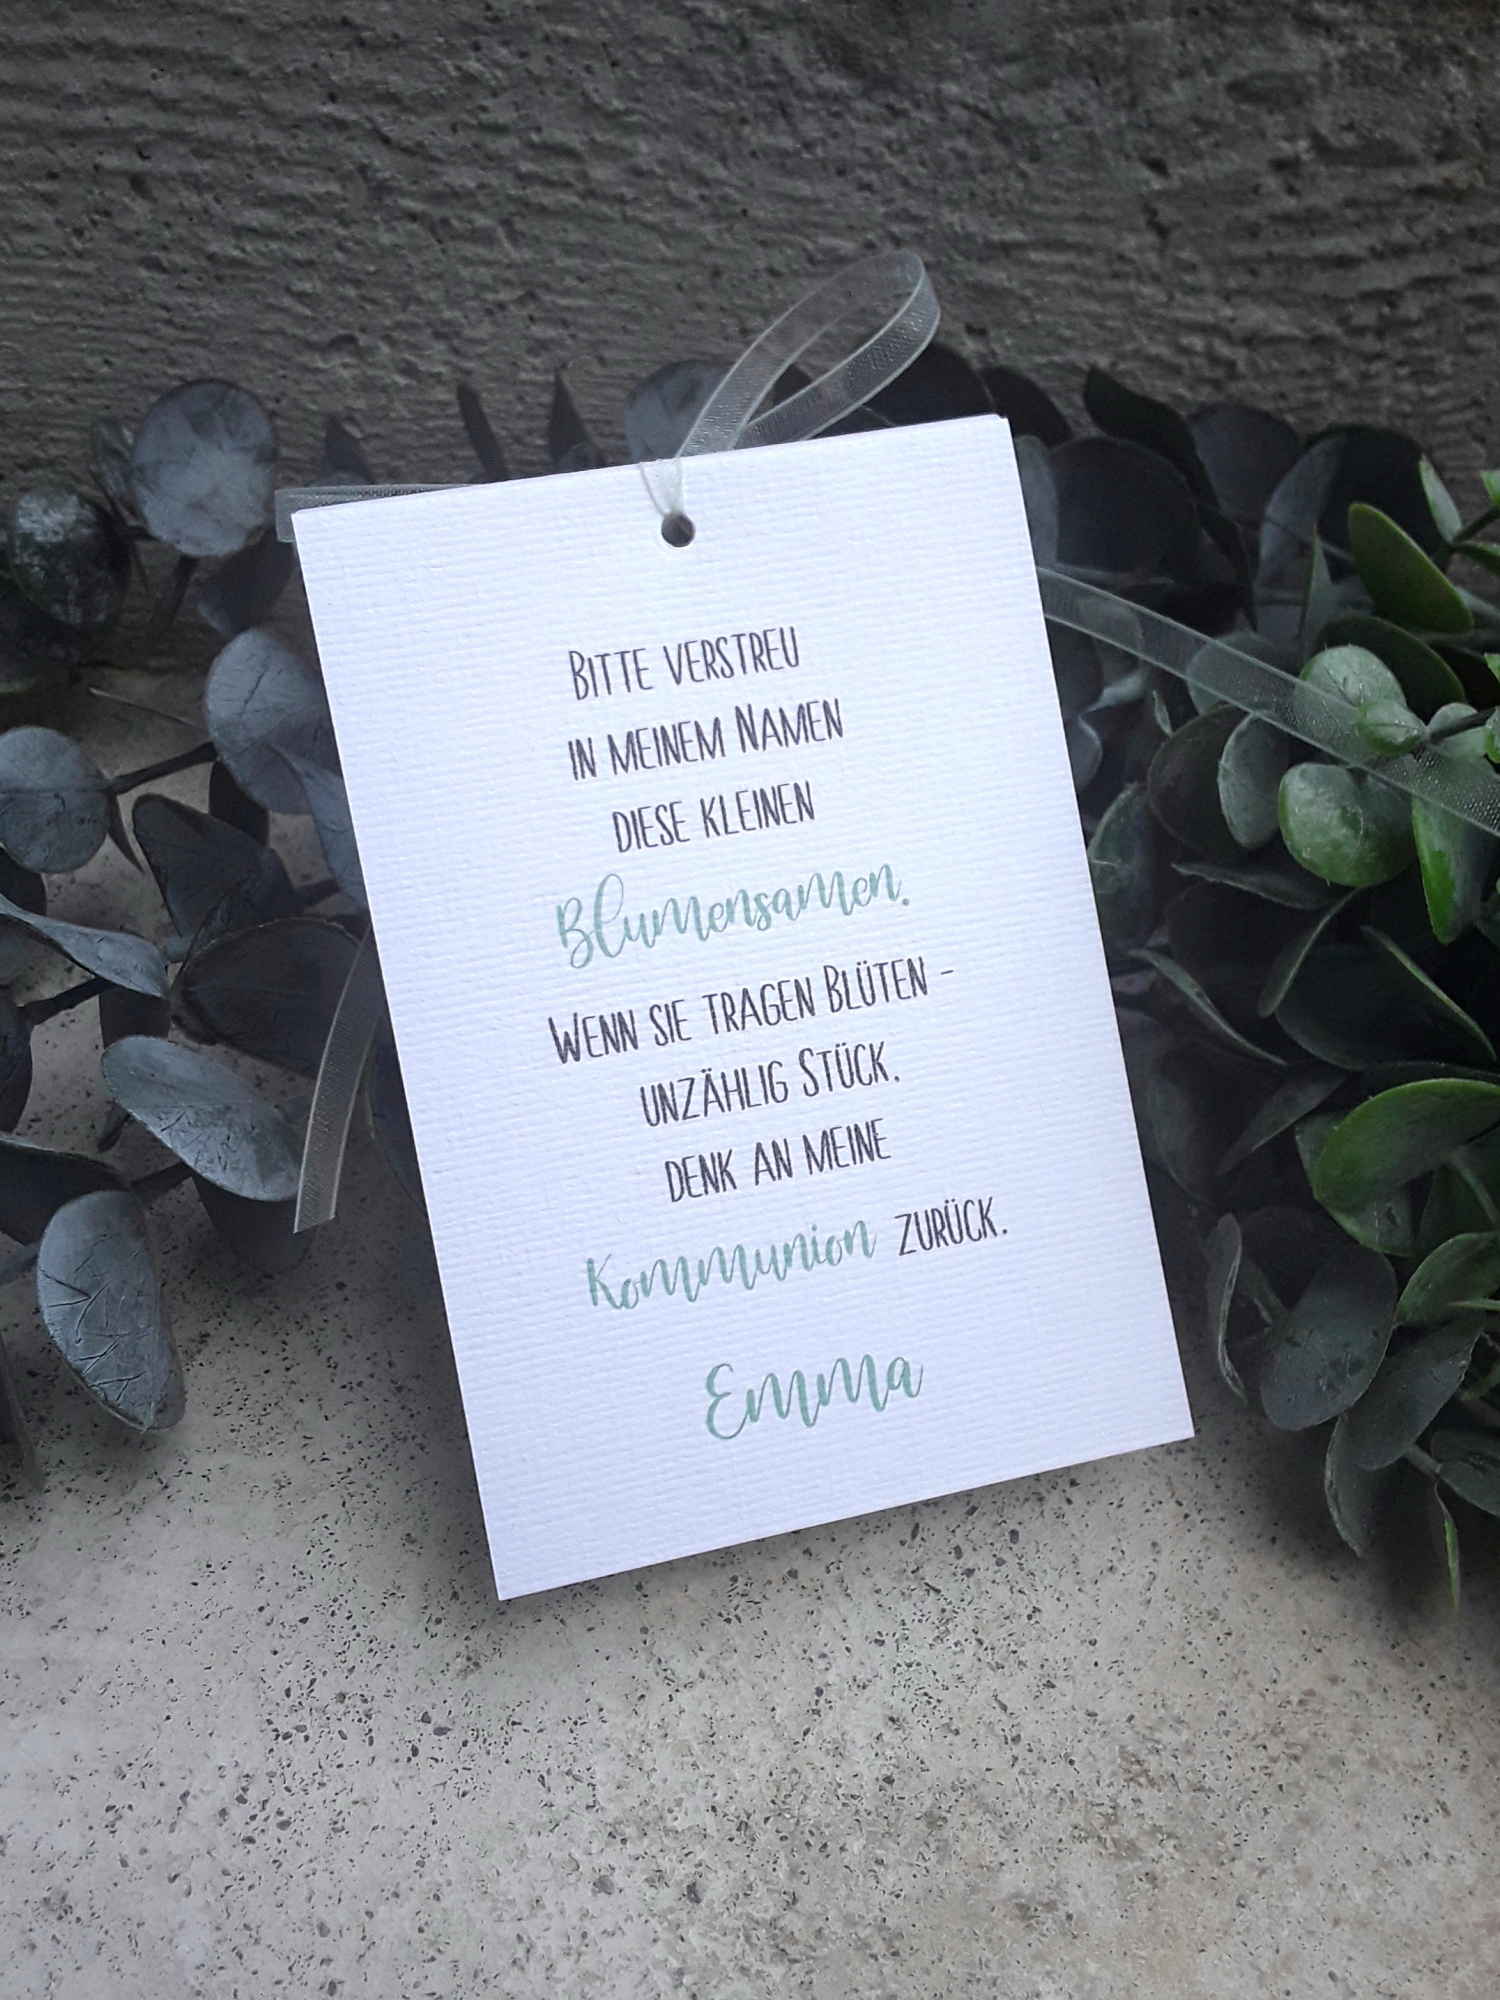 Bitte verstreu
in meinem Namen
diese kleinen
Blumensamen.
Wenn sie tragen Blüten -
unzählig Stück,
denk an meine
Kommunion zurück.
Emma